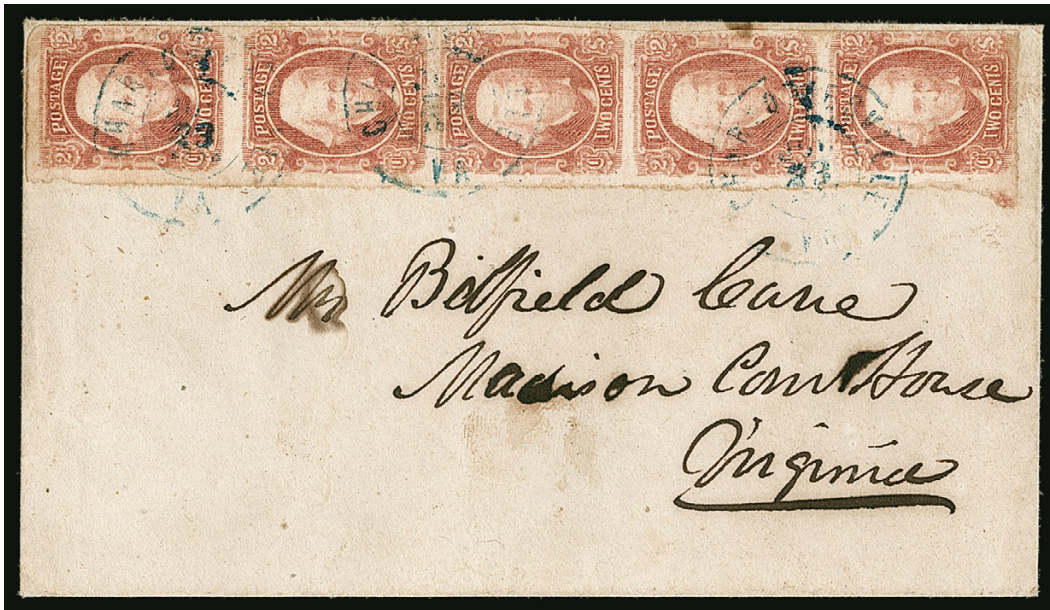 POSTAGE TWO CENTS POSTAGE TWO CENTS POSTAGE TWO CENTS POSTAGE TWO CENTS POSTAGE TWO CENTS
23 VA
VA
23 VA
Mr Bidfield Cave
Madison Court House
Virginia